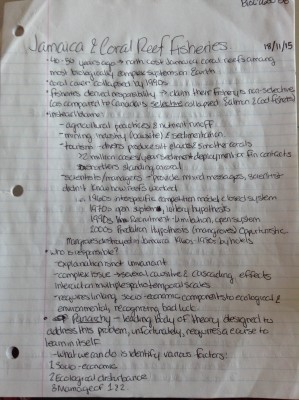 Jamaica & Coral Reef Fisheries 18/11/15
- 40-50 years ago → north coast Jamaica coral reefs among
most biologically complex systems on Earth
- coral cover collapsed by 1990s
- fisheries denied responsibility → claim their fishery is non-selective
(as compared to Canada's selective collapsed salmon & cod fisheries)
- instead blame:
- agricultural practices & nutrient runoff
- mining industry (bauxite) & sedimentation
- tourism - divers produce silt clouds & smother corals
>2 million cases/year sediment deployment or fin contacts
snorkelers standing on coral
- scientists/managers - provide mixed messages, scientists
didn't know how reefs worked
1960s interspecific competition model: closed system
1970s open system, lottery hypothesis
1990s Recruitment-limitation, open system
2000s Predation Hypothesis (mangroves) Opportunistic
Mangroves destroyed in Jamaica by hotels
• who is responsible?
- explanation is not univariant
- complex issue → several causative & cascading effects
interact on multiple spatio temporal scales
- requires linking socio-economic components to ecological &
environmental, recognizing bad luck
• Panarchy → leading body of theory designed to
address this problem, unfortunately, requires a course to
learn itself
- What we can do is identify various factors:
1 Socio-economic
2 Ecological disturbance
3 Manage of 1 2 2